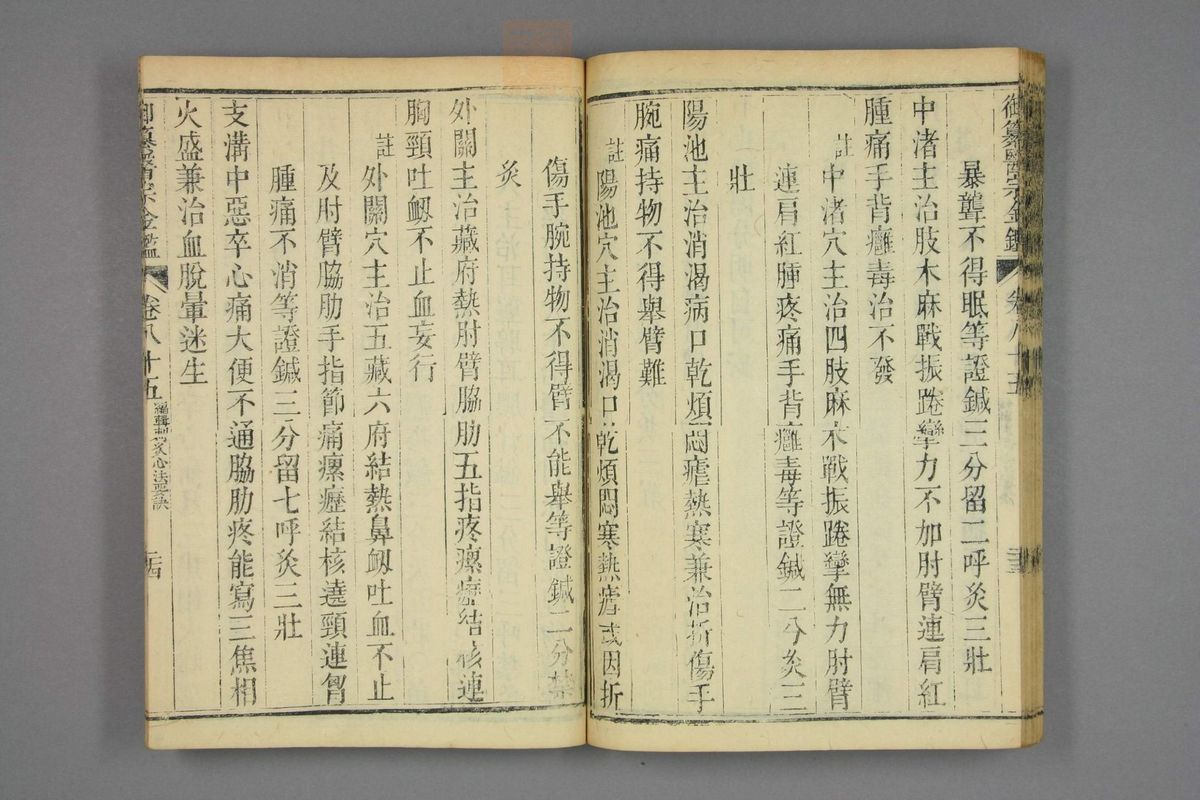 御纂醫宗金鑑 卷八十五 二三
暴聾不得眠等證鍼三分留二呼灸三壯
中渚主治肢木麻戰振踡攣力不加肘臂連肩紅
腫痛手背癰毒治不發
註中渚穴主治四肢麻木戰振踡攣無力肘臂
連肩紅腫疼痛手背癰毒等證鍼二分灸三
壯
陽池主治消渴病口乾煩悶瘧熱寒兼治折傷手
腕痛持物不得舉臂難
註陽池穴主治消渴口乾煩悶寒熱瘧或因折
傷手腕持物不得臂不能舉等證鍼二分禁
灸
外關主治藏府熱肘臂脇肋五指疼瘰癧結核連
胸頸吐衂不止血妄行
註外關穴主治五藏六府結熱鼻衂吐血不止
及肘臂脇肋手指節痛瘰癧結核遶頸連胷
腫痛不消等證鍼三分留七呼灸三壯
支溝中惡卒心痛大便不通脇肋疼能寫三焦相
火盛兼治血脫暈迷生
御纂醫宗金鑑 卷八十五 編輯刺灸心法要訣 二四